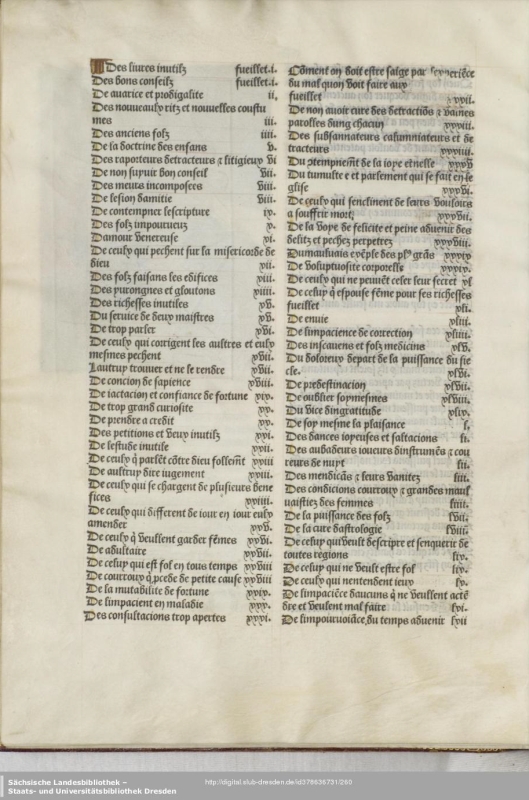 Des liures inutilz fueillet.i.
Des bons conseilz fueillet.i.
De auarice et prodigalite ii.
Des nouueaulx ritz et nouuelles coustu
mes iii.
Des anciens folz iiii.
De la doctrine des enfans v.
Des raporteurs detracteurs ⁊ litigieux vi
De non suyuir bon conseil vii.
Des meurs incomposees viii
De lesion damitie viii.
De contempner lescripture ix.
Des folz impourueuz x.
Damour venereuse xi.
De ceulx qui pechent sur la misericorde de
dieu xii.
Des folz faisans les edifices xiii.
Des yurongnes et gloutons xiiii.
Des richesses inutiles xv.
Du seruice de deux maistres xv.
De trop parler xvi.
De ceulx qui corrigent les aultres et eulx
mesmes pechent xvii.
Lautruy trouuer et ne le rendre xvii.
De concion de sapience xviii.
De iactacion et confiance de fortune xix.
De trop grand curiosite xx.
De prendre a credit xx.
Des petitions et veux inutilz xxi.
De lestude inutile xxii.
De ceulx q̃ parlẽt cõtre dieu follemẽt xxiii
De aultruy dire iugement xxiii.
De ceulx qui se chargent de plusieurs bene
fices xxiiii.
De ceulx qui different de iour en iour eulx
amender xxv.
De ceulx q̃ veullent garder fẽmes xxvi.
De adultaire xxvii.
De celup qui est fol en tous temps xxviii
De courroux q̃ pcede de petite cause xxviii
De la mutabilite de fortune xxix.
De limpacient en maladie xxx.
Des consultacions trop apertes xxxi.
Cõment on doit estre saige par
du mal quon voit faire aux
fueillet xxxii.
De non auoir cure des detractiõs ⁊ vaines
parolles dung chacun xxxiii.
Des subsannateurs calumniateurs et de
tracteurs xxxiiii.
Du ɔtempnemẽt de la ioye etnelle xxxv
Du tumulte et parlement qui se fait en le
glise xxxvi.
De ceulx qui senclinent de leurs vouloirs
a souffrir mort. xxxvii.
De la voye de felicite et peine aduenir des
delitz et pechez perpetrez xxxviii.
Du mauluais exẽple des pl⁹ grãs xxxix
De voluptuosite corporelle xxxix.
De ceulx qui ne peuuẽt celer leur secret xl
De celup q̃ espouse fẽme pour ses richesses
fueillet xli.
De enuie xlii.
De limpacience de correction xliiii.
Des inscauens et folz medicins xlv.
Du doloreux depart de la puissance du sie
cle. xlvi.
De predestinacion xlvii.
De oublier soymesmes xlviii.
Du vice dingratitude xlix.
De soy mesme la plaisance l.
Des dances ioyeuses et saltacions li.
Des aubadeurs ioueurs dinstrumẽs ⁊ cou
reurs de nuyt lii.
Des mendicãs ⁊ leurs vanitez liii.
Des condicions courroux ⁊ grandes maul
uaistiez des femmes liiii.
De la puissance des folz lvii.
De la cure dastrologie lviii.
De celup qui veult descripre et senquerir de
toutes regions lix.
De celup qui ne veult estre fol lx.
De ceulx qui nentendent ieux lx.
De limpaciẽce daucuns q̃ ne veullent actẽ
dre et veulent mal faire lxi.
De limpouruoiãce du temps aduenir lxii
Sächsische Landesbibliothek –
Staats- und Universitätsbibliothek Dresden
http://digital.slub-dresden.de/id378636731/260